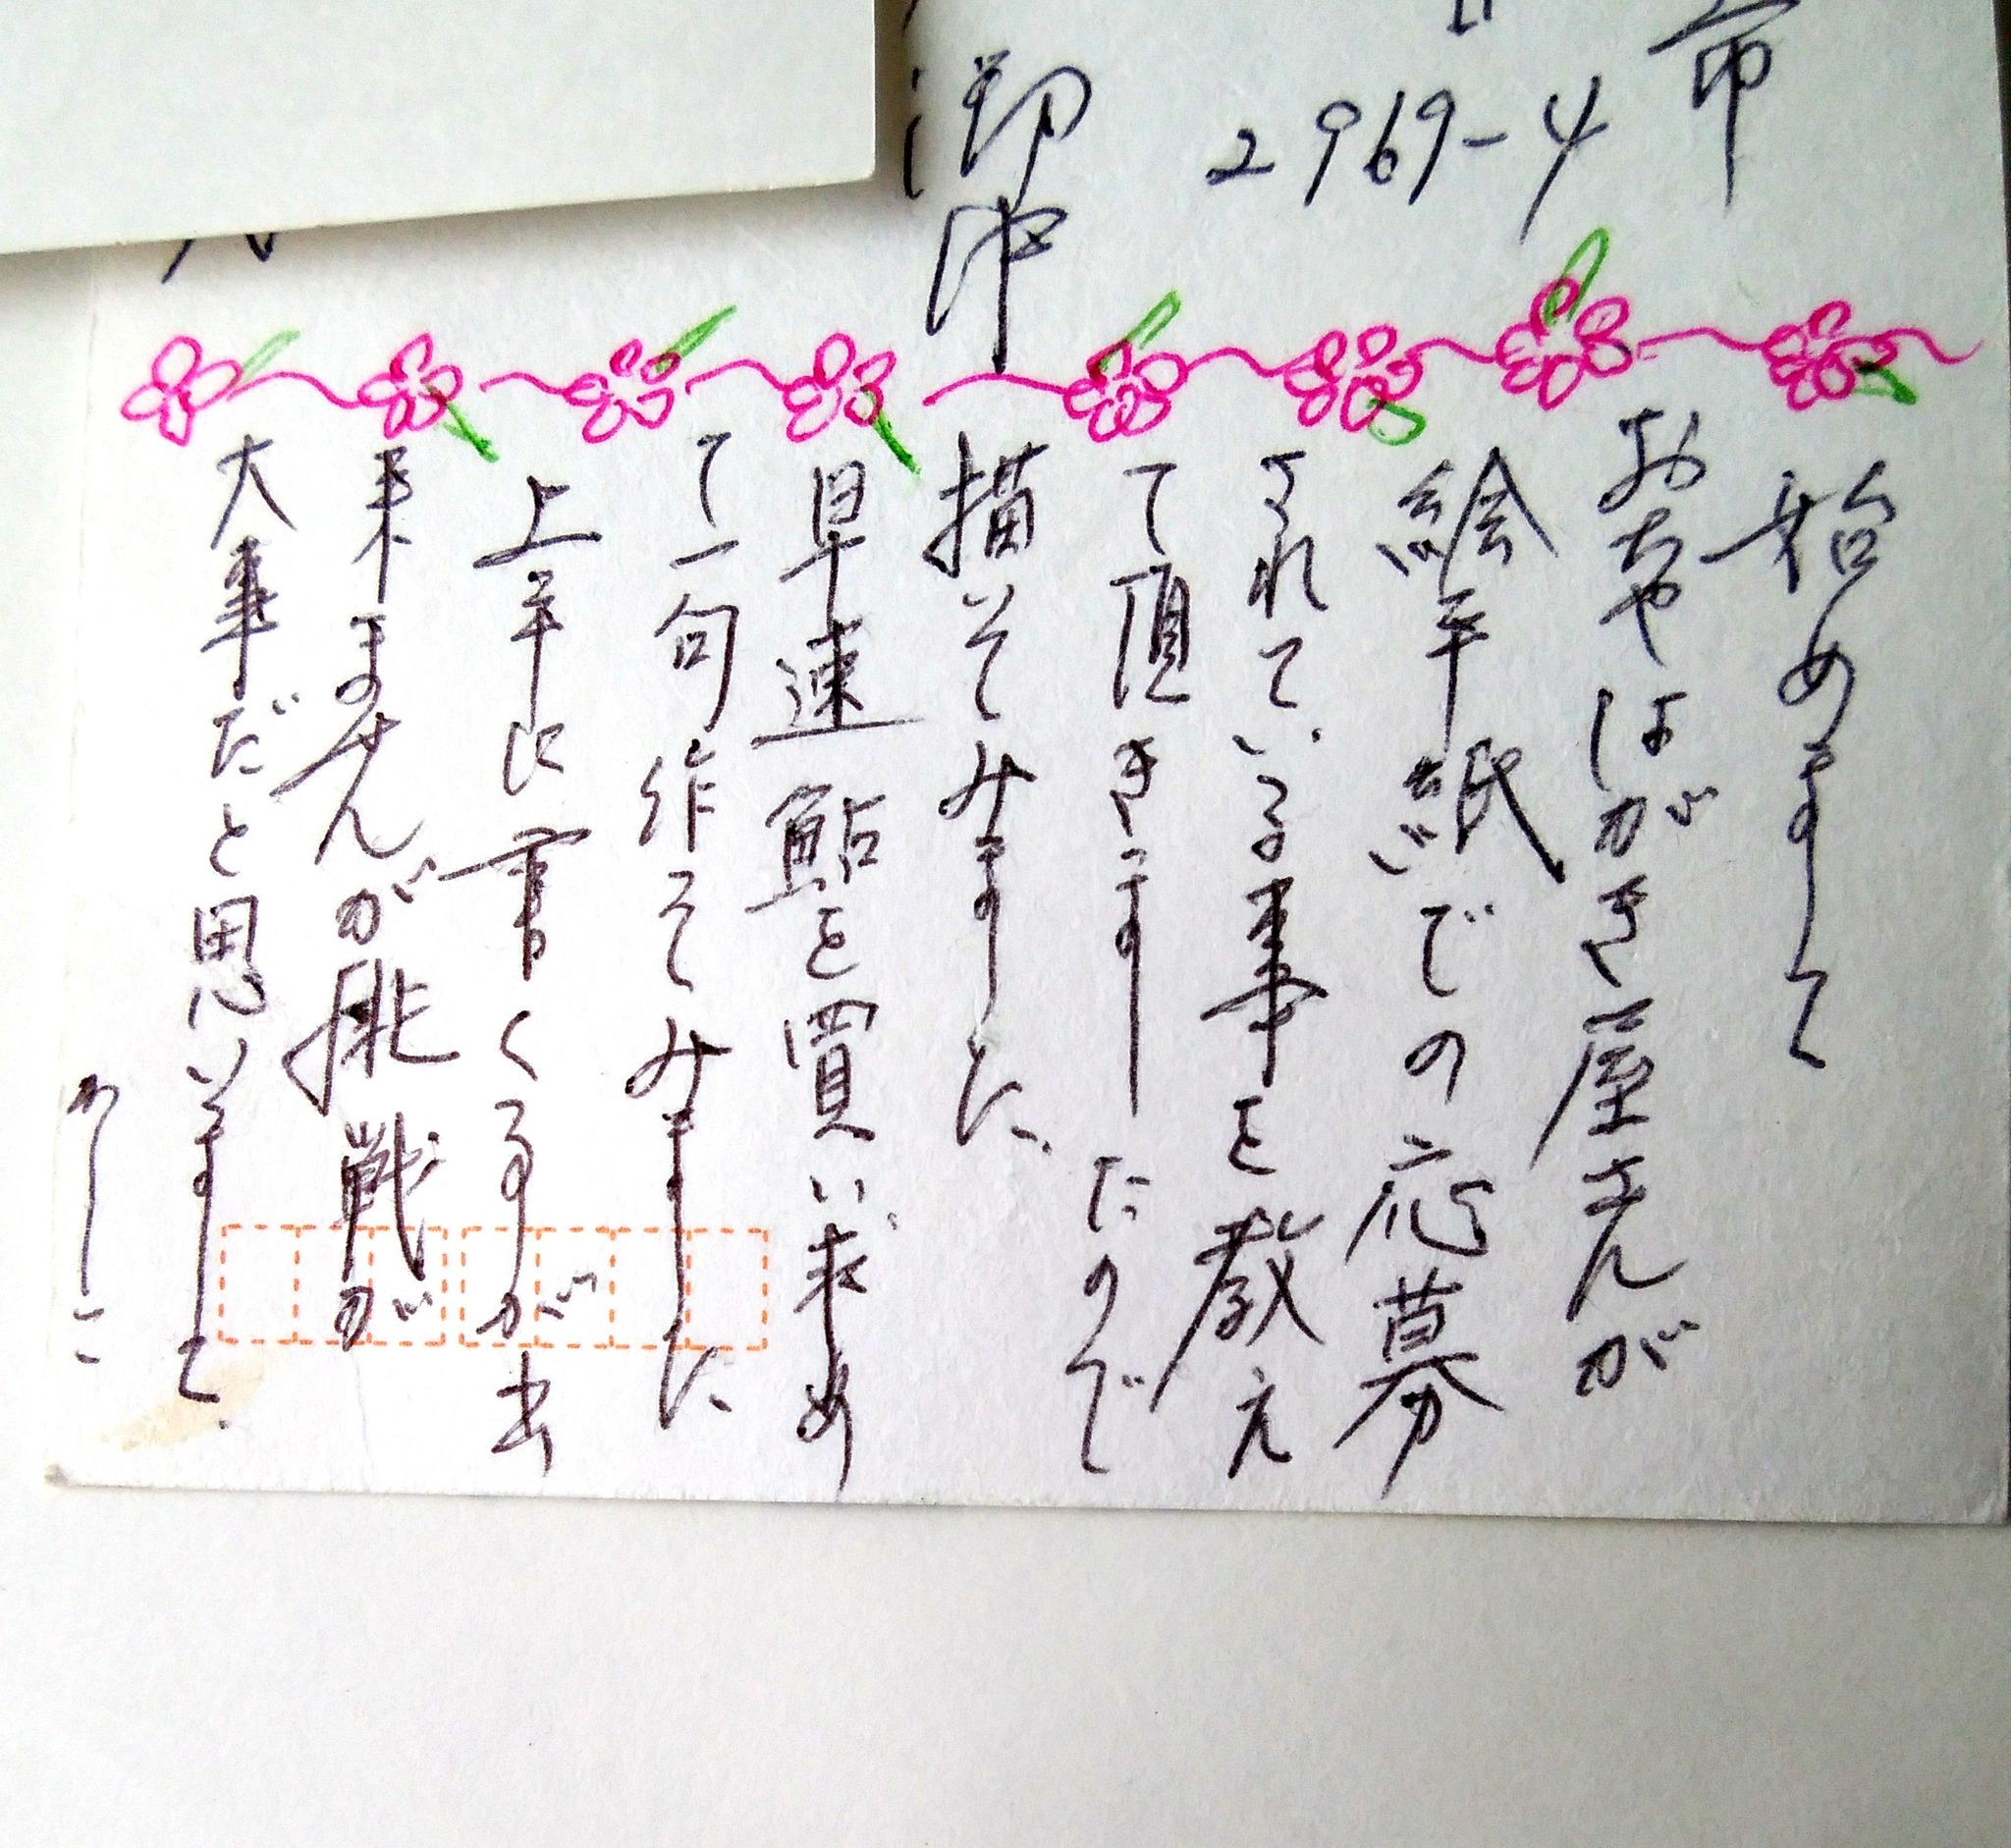 市
2969-4
御中
始めまして
おちゃはがき屋さんが
絵手紙での応募
されている事を教え
て頂きましたので
描いてみました
早速鮎を買い求め
て一句作ってみました
上手に書く事が出
来ませんが挑戦が
大事だと思いまして